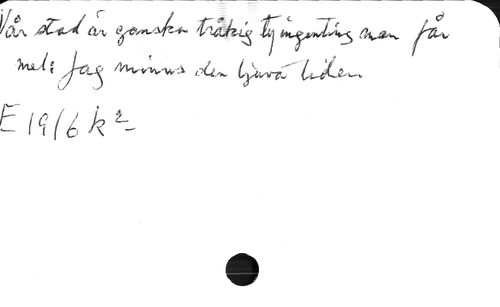 Vår stad är ganska tråkig ty ingenting man får
mel: Jag minns den ljuva tiden
E 19/6 k²